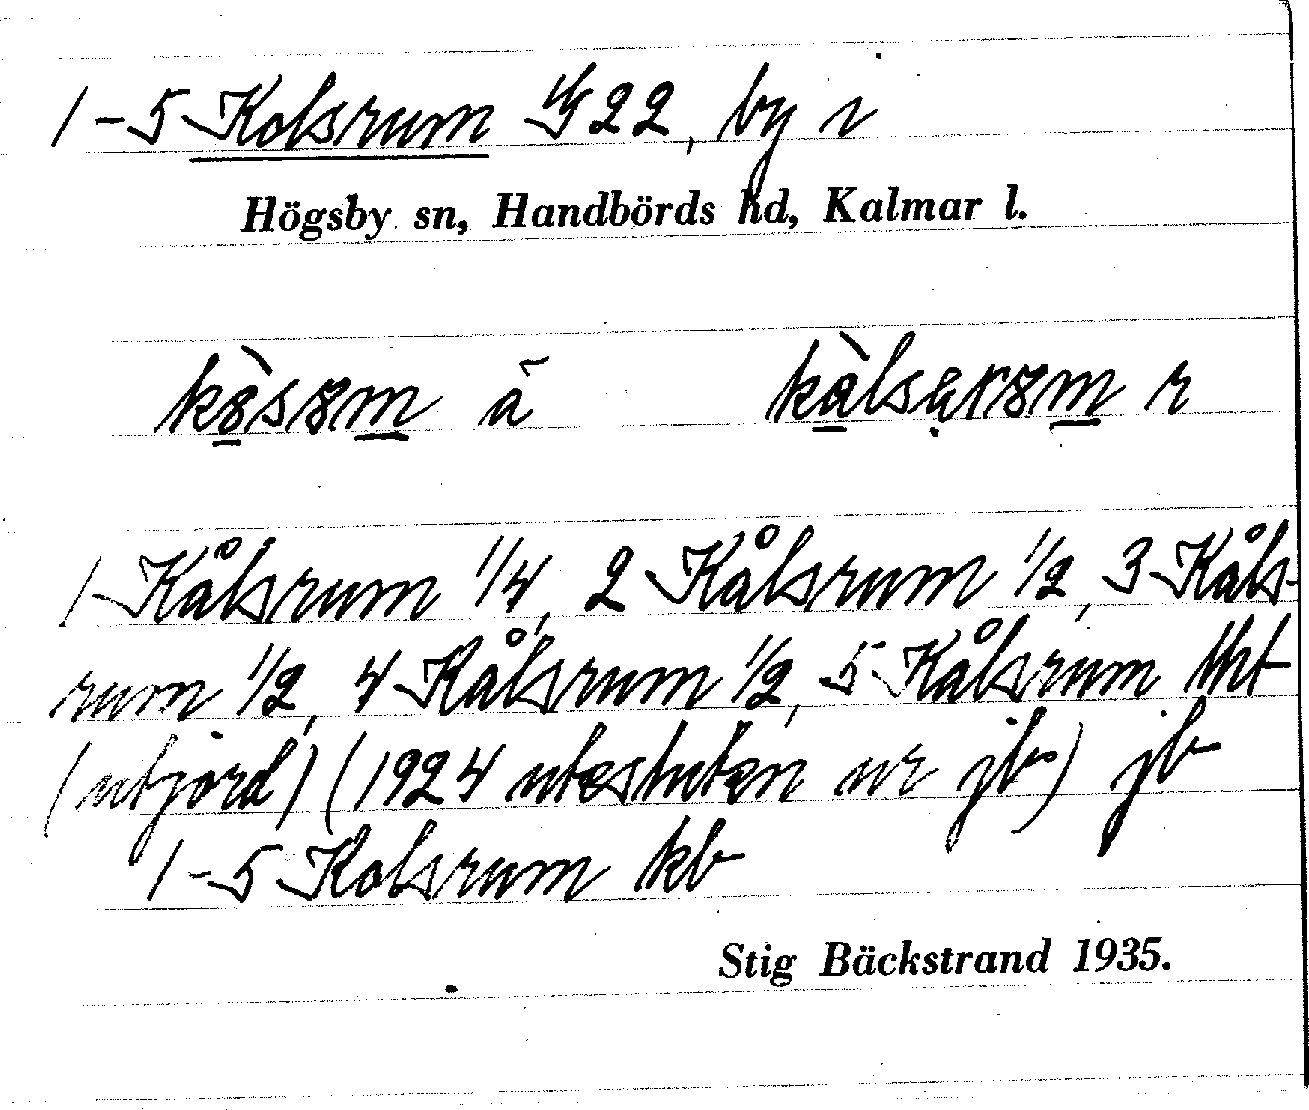 1-5 Kolsrum 4/5 22, by i
Högsby sn, Handbörds hd, Kalmar l.
kòsum ä kålsarum r
1 Kålsrum 1/4, 2 Kålsrum 1/2, 3 Kåls-
rum 1/2, 4 Kålsrum 1/2, 5 Kålsrum lht
(utjord) (1924 utesluten ur jb) jb
1-5 Kolsrum kb
Stig Bäckstrand 1935.